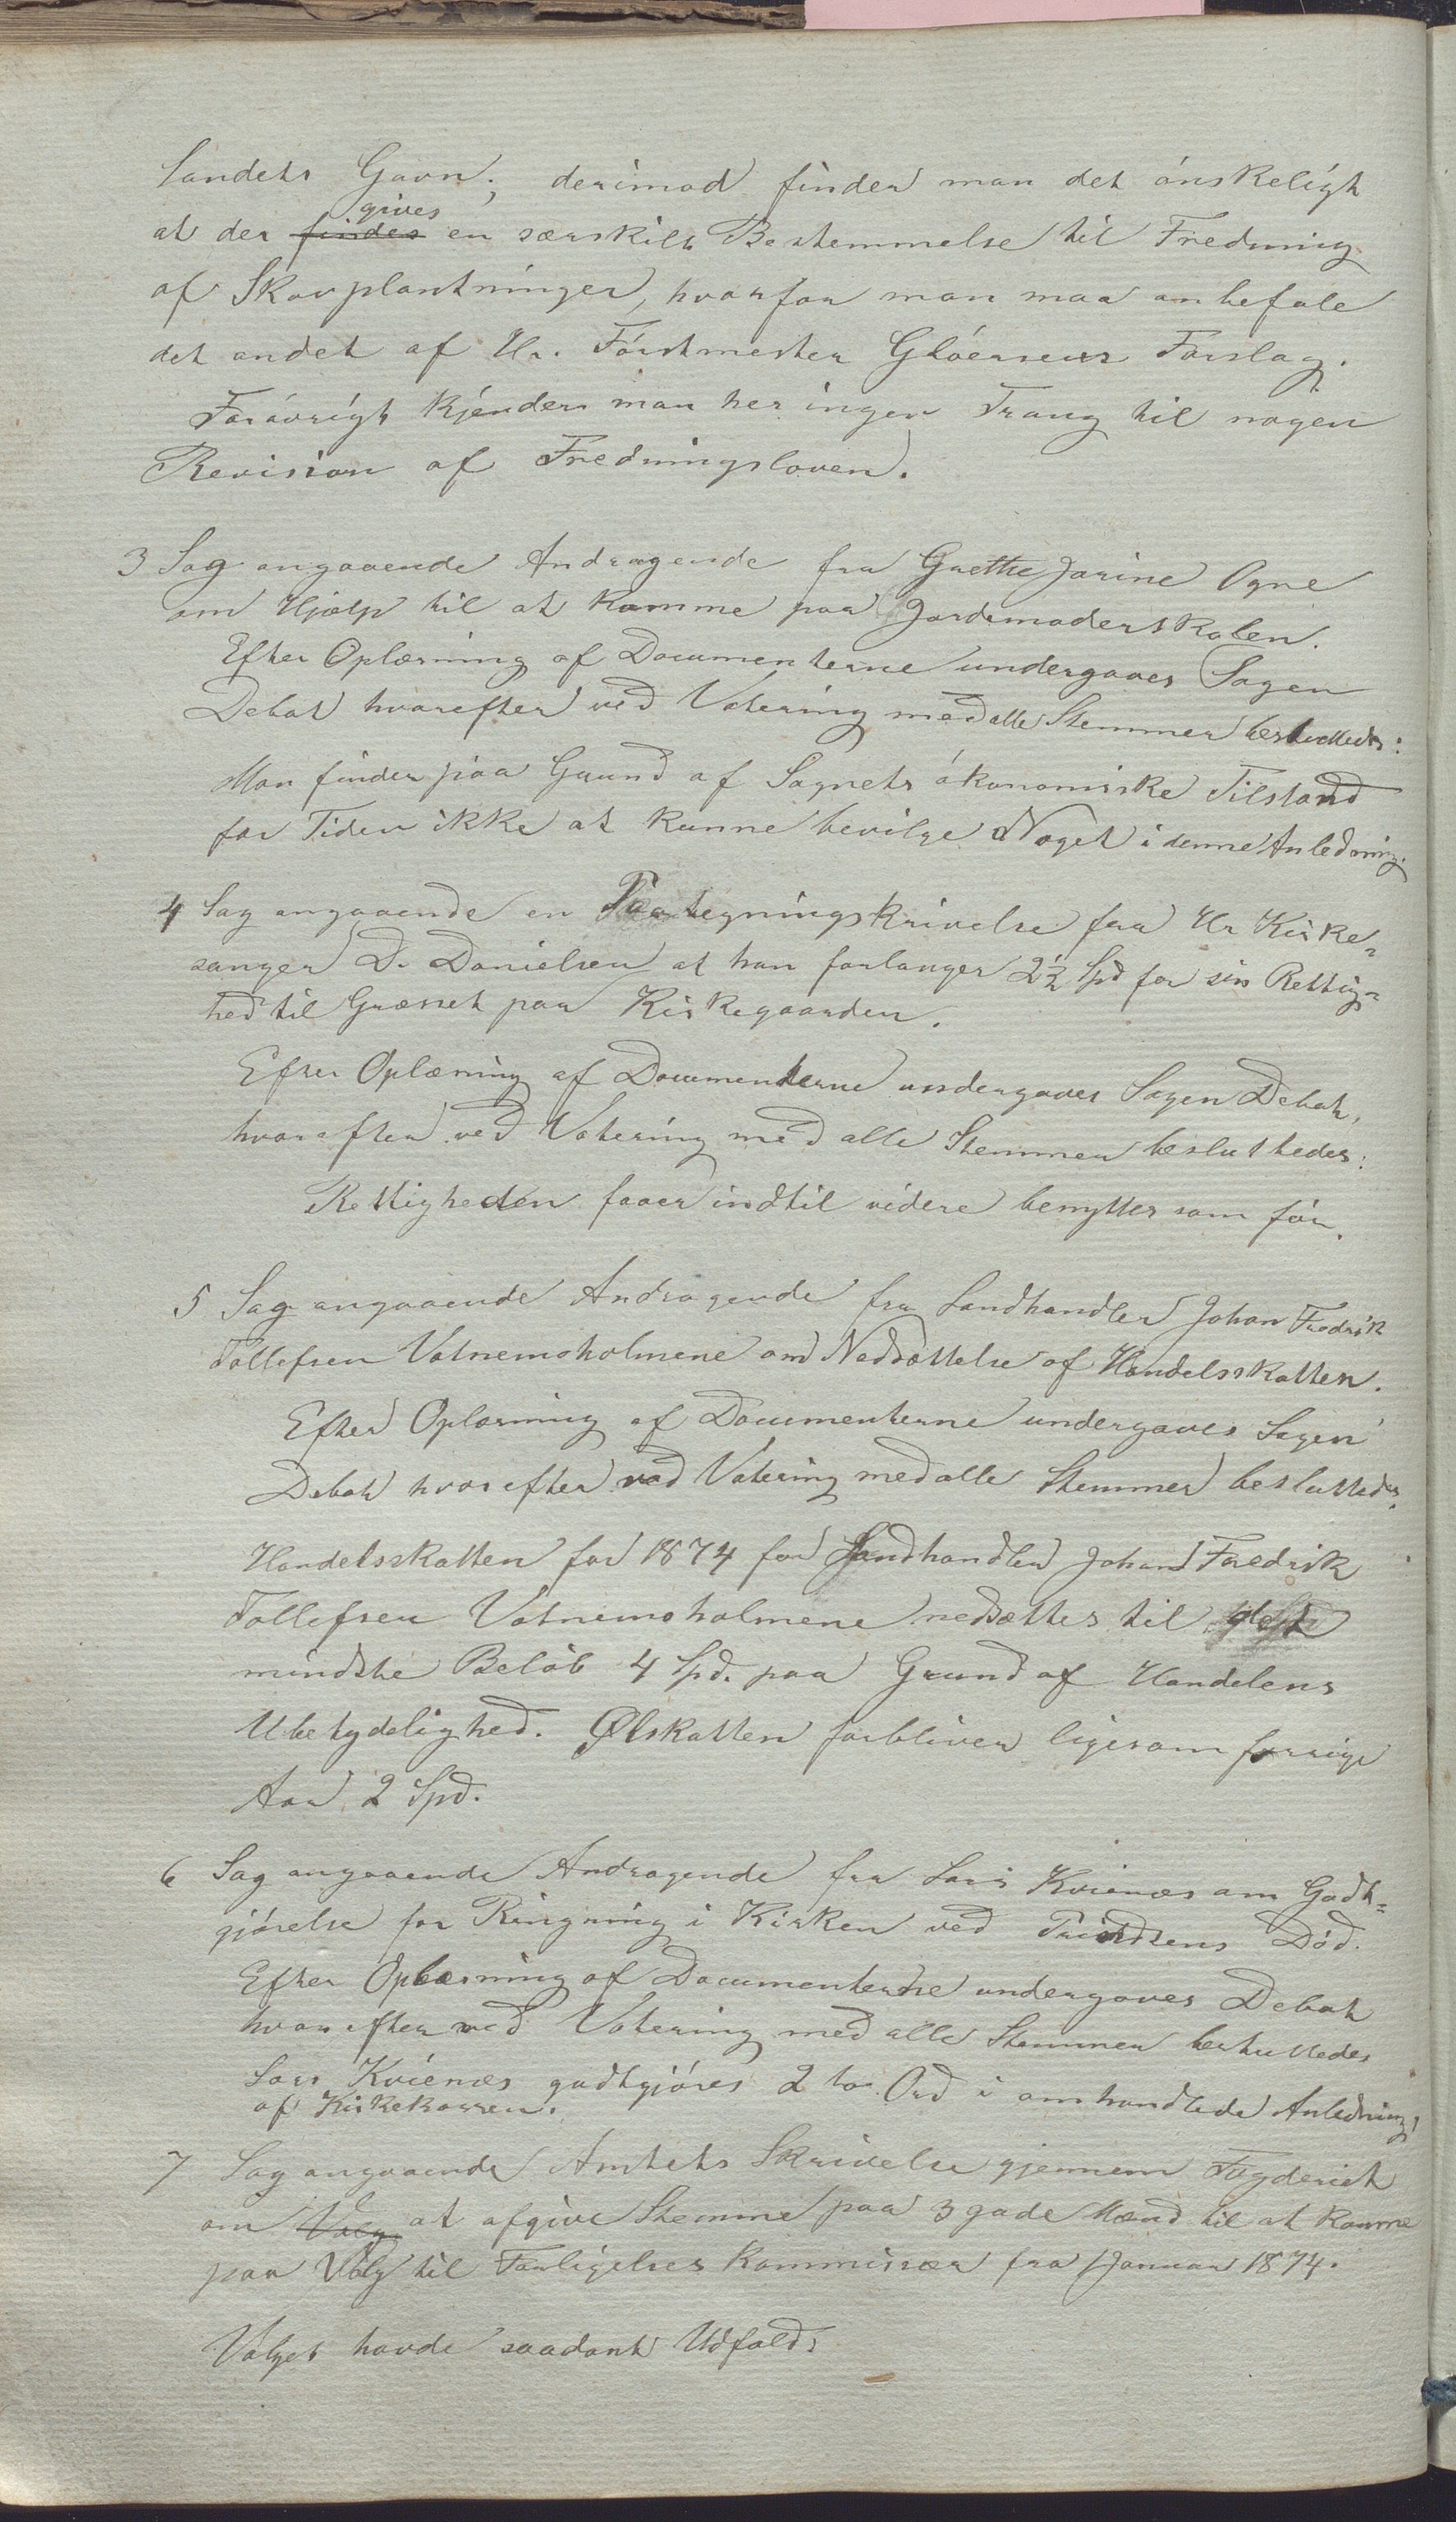 landets Gavn; derimod finder man det ónskeligt
gives
at der findes en særskilt Bestemmelse til Fredning
af Skovplantninger, hvorfor man maa anbefale
det andet af Hr. Fórstmester Glóersens Forslag.
Foróvrigt kjender man her ingen Trang til nogen
Revision af Fredningsloven.
3 Sag angaaende Andragende fra Grethe Jorine Ogne
om Hjælp til at komme paa Jordemoderskolen.
Efter Oplæsning af Documenterne undergaves Sagen
Debat hvorefter ved Votering med alle Stemmer besluttedes:
Man finder paa Grund af Sognets ókonomiske Tilstand
for Tiden ikke at kunne bevilge Noget i denne Anledning.
4 Sag angaaende en Paategningskrivelse fra Hr Kirke=
sanger D. Danielsen at han forlanger 2½ Spd for sin Rettig=
hed til Græsset paa Kirkegaarden.
Efter Oplæsning af Documenterne undergaves Sagen Debat,
hvorefter ved Votering med alle Stemmer besluttedes:
Rettigheden faaer indtil videre benyttes som fór.
5 Sag angaaende Andragende fra Landhandler Johan Fredrik
Tollefsen Vatnemoholmene om Nedsættelse af Handelsskatten.
Efter Oplæsning af Documenterne undergaves Sagen
Debat hvorefter ved Votering med alle Stemmer besluttedes:
Handelsskatten for 1874 for Landhandler Johan Fredrik
Tollefsen Vatnemoholmene nedsættes til det
mindste Belób 4 Spd. paa Grund af Handelens
Ubetydelighed. Ølskatten forbliver ligesom forrige
Aar 2 Spd.
6 Sag angaaende Andragende fra Lars Kvienæs om Godt=
gjórelse for Ringning i Kirken ved Prindsens Dód.
Efter Oplæsning af Documenterne undergaves Debat
hvorefter ved Votering med alle Stemmer besluttedes
Lars Kvienæs godtgjóres 2 to Ord i omhandlede Anledning
af Kirkekassen.
7 Sag angaaende Amtets Skrivelse gjennem Fogderiet
om Valg at afgive Stemme paa 3 gode Mænd til at komme
paa Valg til Forligelses Kommissær fra Januar 1874.
Valget havde saadant Udfald: